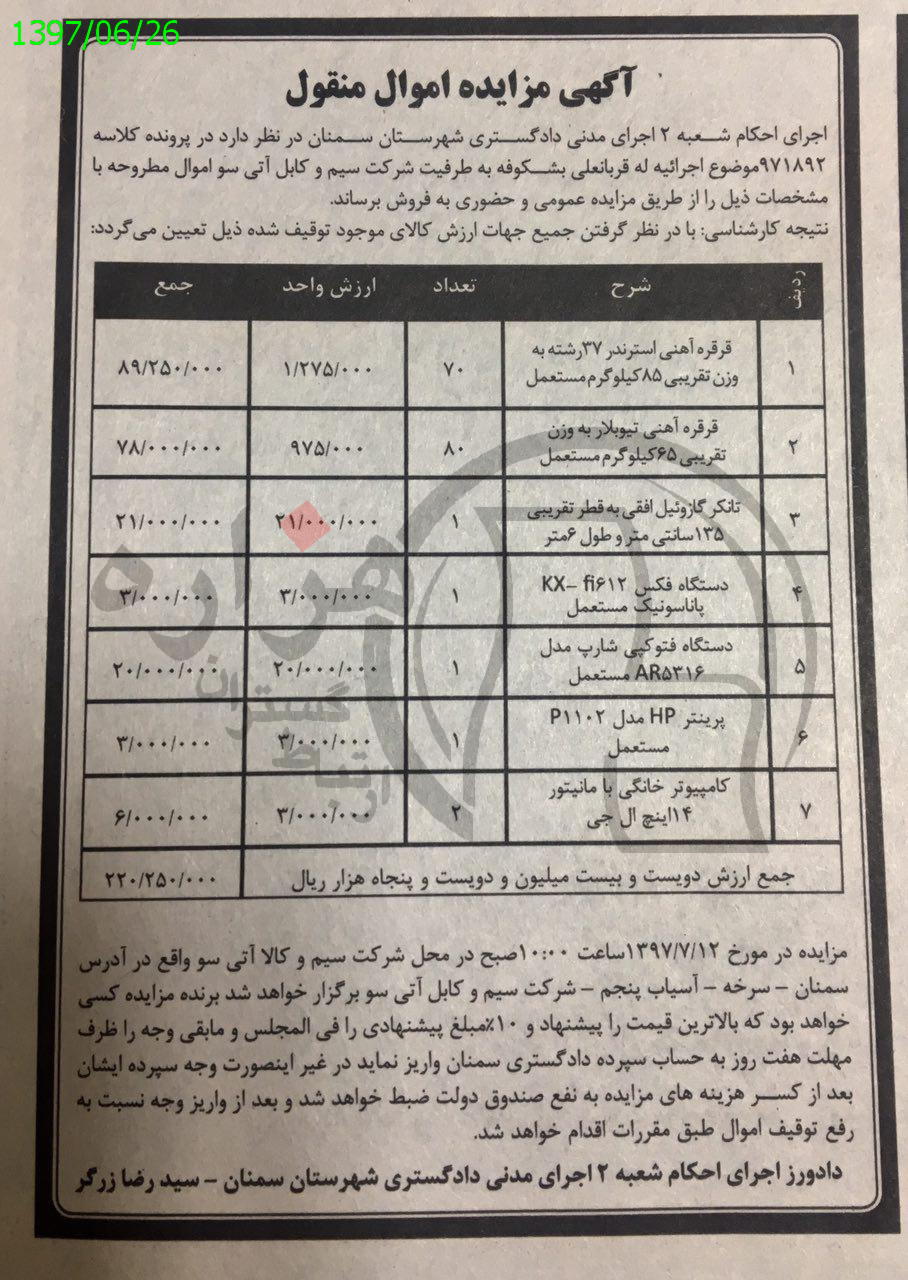 1397/06/26
آگهی مزایده اموال منقول
اجرای احکام شعبه ۲ اجرای مدنی دادگستری شهرستان سمنان در نظر دارد در پرونده کلاسه
۹۷۱۸۹۲موضوع اجرائیه له قربانعلی بشکوفه به طرفیت شرکت سیم و کابل آتی سو اموال مطروحه با
مشخصات ذیل را از طریق مزایده عمومی و حضوری به فروش برساند.
نتیجه کارشناسی: با در نظر گرفتن جمیع جهات ارزش کالای موجود توقیف شده ذیل تعیین می‌گردد:
ردیف شرح تعداد ارزش واحد جمع
۱ قرقره آهنی استرندر ۳۷رشته به وزن تقریبی ۸۵کیلوگرم مستعمل ۷۰ ۱/۲۷۵/۰۰۰ ۸۹/۲۵۰/۰۰۰
۲ قرقره آهنی تیوبلار به وزن تقریبی ۶۵کیلوگرم مستعمل ۸۰ ۹۷۵/۰۰۰ ۷۸/۰۰۰/۰۰۰
۳ تانکر گازوئیل افقی به قطر تقریبی ۱۳۵سانتی متر و طول ۶متر ۱ ۲۱/۰۰۰/۰۰۰ ۲۱/۰۰۰/۰۰۰
۴ دستگاه فکس KX– fi۶۱۲ پاناسونیک مستعمل ۱ ۳/۰۰۰/۰۰۰ ۳/۰۰۰/۰۰۰
۵ دستگاه فتوکپی شارپ مدل AR۵۳۱۶ مستعمل ۱ ۲۰/۰۰۰/۰۰۰ ۲۰/۰۰۰/۰۰۰
۶ پرینتر HP مدل P۱۱۰۲ مستعمل ۱ ۳/۰۰۰/۰۰۰ ۳/۰۰۰/۰۰۰
۷ کامپیوتر خانگی با مانیتور ۱۴اینچ ال جی ۲ ۳/۰۰۰/۰۰۰ ۶/۰۰۰/۰۰۰
جمع ارزش دویست و بیست میلیون و دویست و پنجاه هزار ریال ۲۲۰/۲۵۰/۰۰۰
هزاره
گستران
ارتباط
مزایده در مورخ ۱۳۹۷/۷/۱۲ساعت ۱۰:۰۰صبح در محل شرکت سیم و کالا آتی سو واقع در آدرس
سمنان – سرخه – آسیاب پنجم – شرکت سیم و کابل آتی سو برگزار خواهد شد برنده مزایده کسی
خواهد بود که بالاترین قیمت را پیشنهاد و ۱۰٪مبلغ پیشنهادی را فی المجلس و مابقی وجه را ظرف
مهلت هفت روز به حساب سپرده دادگستری سمنان واریز نماید در غیر اینصورت وجه سپرده ایشان
بعد از کسر هزینه های مزایده به نفع صندوق دولت ضبط خواهد شد و بعد از واریز وجه نسبت به
رفع توقیف اموال طبق مقررات اقدام خواهد شد.
دادورز اجرای احکام شعبه ۲ اجرای مدنی دادگستری شهرستان سمنان – سید رضا زرگر